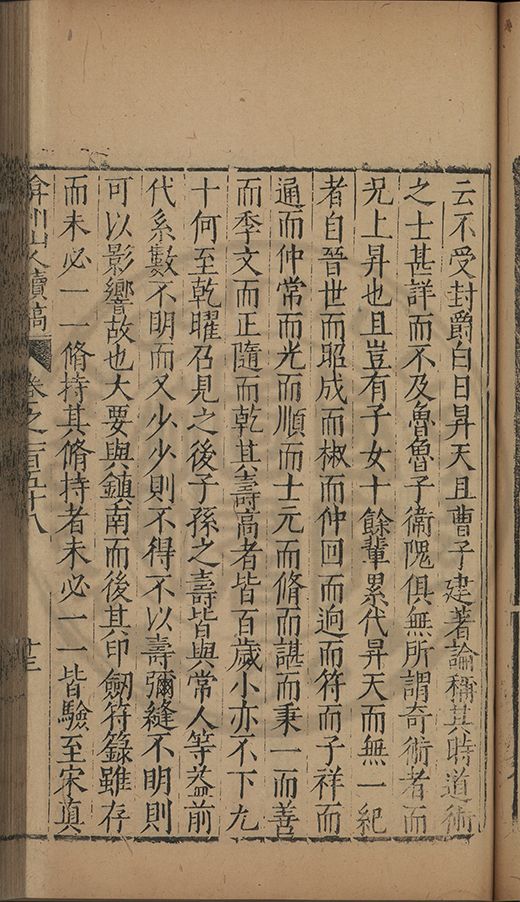 云不受封爵白日昇天且曹子建著論稱其時道術
之士甚詳而不及魯魯子衛隗俱無所謂奇術者而
况上昇也且豈有子女十餘輩累代昇天而無一紀
者自晉世而昭成而椒而仲回而逈而符而子祥而
通而仲常而光而順而士元而脩而諶而秉一而善
而季文而正隨而乾其壽高者皆百歲小亦不下九
十何至乾曜召見之後子孫之壽皆與常人等葢前
代系數不明而又少少則不得不以壽彌縫不明則
可以影響故也大要與鎮南而後其印劒符籙雖存
而未必一一脩持其脩持者未必一一皆驗至宋真
弇州山人續稿 卷之一百五十八 廿三